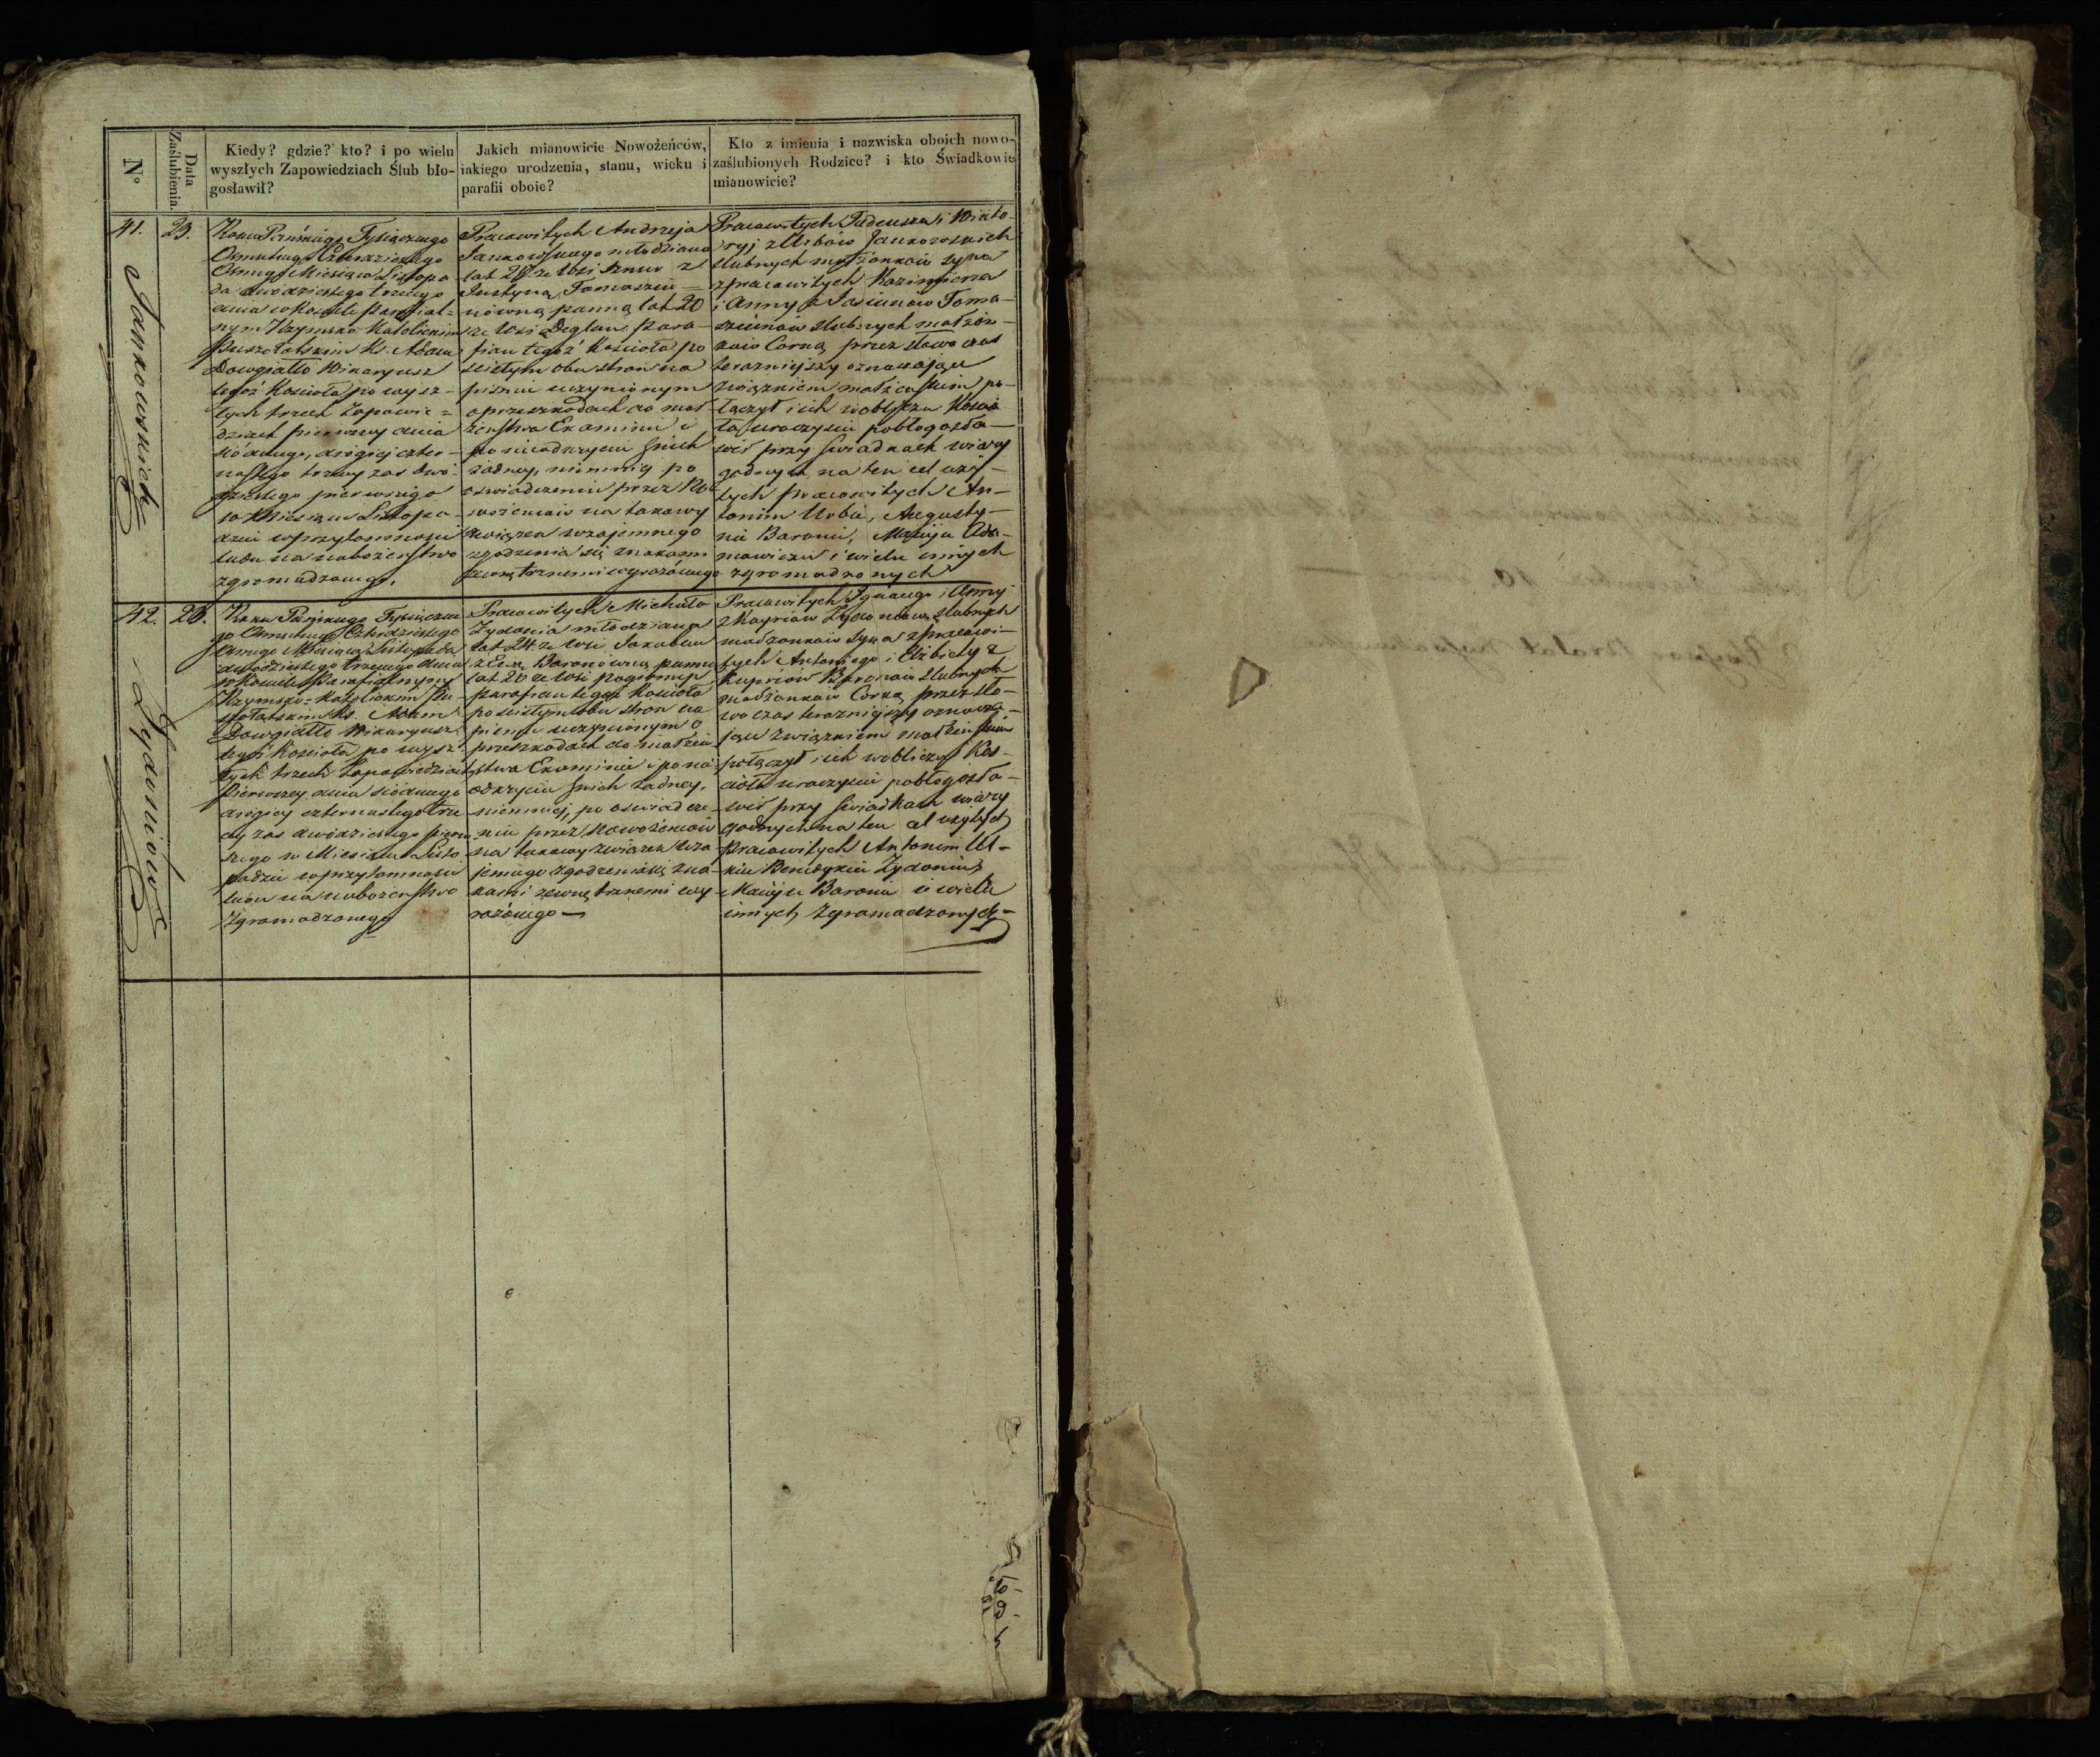 N°
Data Zaślubienia.
Kiedy? gdzie? kto? i po wielu
wyszłych Zapowiedziach Ślub bło-
gosławił?
Jakich mianowicie Nowożeńców,
iakiego urodzenia, stanu, wieku i
parafii oboie?
Kto z imienia i nazwiska oboich nowo-
zaślubionych Rodzice? i kto Świadkowie
mianowicie?
41.
Jankowskich
23.
Roku Pańskiego Tysiącznego
Osmsetnego Czterdziestego
Osmego Miesiąca Listopa-
da dwódziestego trzeciego
dnia w Kościele Parafial-
nym Rzymsko-Katolickim
Puszołatskim Ks. Adam
Dowgiałło Wikaryusz
tegoż Kościoła po wysz-
łych trzech Zapowie-
dziach pierwszy dnia
siódmego, drógiej czter-
nastego trzeciy zaś dwó-
dziestego pierwszego
w Miesiącu Listopa-
dzie w przytomności
ludu na nabożeństwo
zgromadzonego.
Pracowitych Andrzeja
Jankowskiego młodziana
lat 28 ze Wsi z
Justyną Tomaszu-
nówną panną lat 20
ze Wsi Deglan para-
fian tegoż Kościoła po
ścisłym obu stron na
piśmie uczynionym
o przeszkodach do mał-
żeństwa Examinie i
po nieodkryciu z nich
żadney, niemniéy po
oświadczeniu przez No-
wożeńców na takowy
związek wzajemnego
zgodzenia się znakami
zewnętrznemi wyrażonego
Pracowitych Tadeusza i Wikto-
ryi z Urbów Jankowskich
ślubnych małżonków syna
z pracowitych Kazimierza
i Anny z Jasiunów Toma-
szunów ślubnych małżon-
ków Corką, przez słowa czas
teraznieyszy oznawające
związkiem małżeńskim po-
łączył i ich w obliczu Kościo-
ła uroczyście pobłogosła-
wił przy świadkach wiary
godnych na ten cel uży-
tych pracowitych An-
tonim Urbie, Augusty-
nie Baronie, Macieju Ada-
mowiczu i wielu innych
zgromadzonych
42.
Żydoniów
23.
Roku Pańskiego Tysiączne-
go Osmsetnego Czterdziestego
Osmego Miesiąca Listopada
dwódziestego trzeciego dnia
w Kościele Parafialnym
Rzymsko-Katolickim Pu-
szołatskim Ks. Adam
Dowgiałło Wikaryusz
tegoż Kościoła po wysz-
łych trzech Zapowiedziach
pierwszey dnia siódmego
drógiey czternastego trze-
ciy zaś dwódziestego pierw-
szego w Miesiącu Listo-
padzie w przytomności
ludu na nabożeństwo
zgromadzonego
Pracowitych Michała
Żydonia młodziana
lat 24 ze Wsi Jakubun
z Ewą Baronówną panną
lat 20 ze Wsi
parafian tegoż Kościoła
po ścisłym obu stron na
piśmie uczynionym o
przeszkodach do małżeń-
stwa Examinie i po nie
odkryciu z nich żadney,
niemniéj, po oświadcze-
niu przez Nowożeńców
na takowy związek wza-
jemnego zgodzenia się zna-
kami zewnętrznemi wy-
rażonego-
Pracowitych Ignacego i Anny
z Kuprów Żydoniów ślubnych
małżonków syna z pracowi-
tych Antoniego i Elżbiety z
Kupriów Baronów ślubnych
małżonków Corką przez sło-
wo czas teraznieyszy oznawa-
jące związkiem małżeńskim
połączył i ich w obliczu Koś-
cioła uroczyście pobłogosła-
wił przy świadkach wiary
godnych na ten cel użytych
Pracowitych Antonim
Benedykcie Żydoniu,
Macieju Baronie i wielu
innych zgromadzonych-